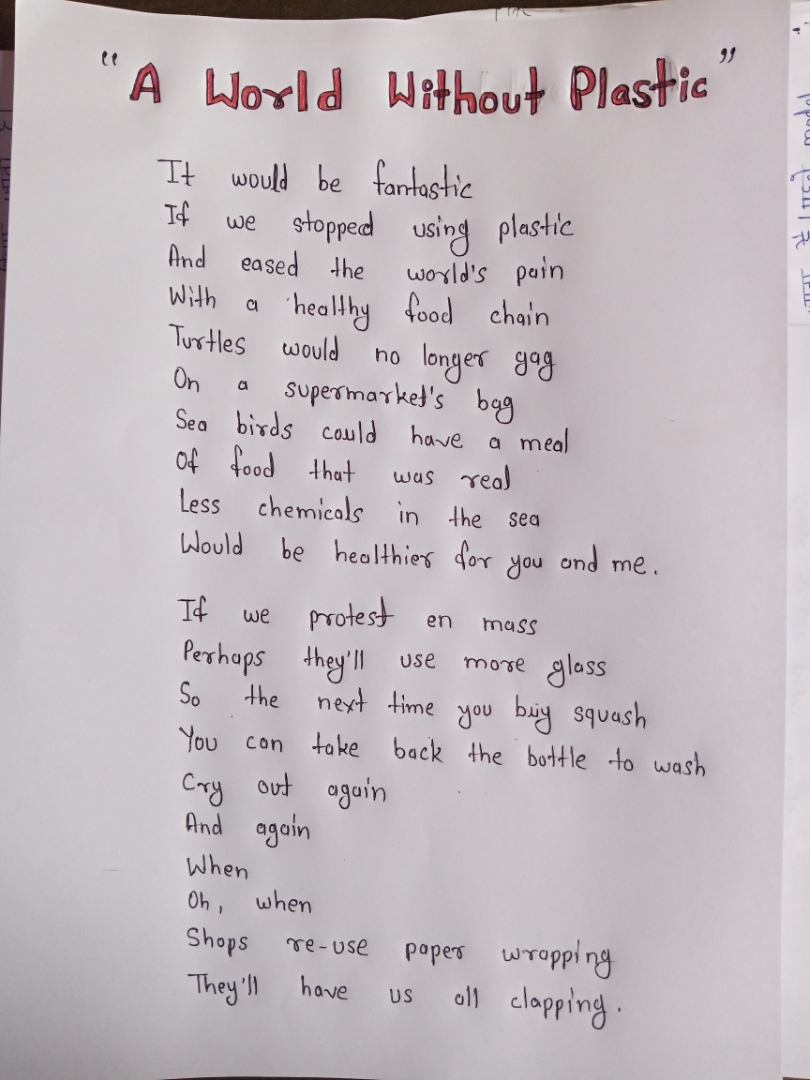 “A World Without Plastic”
It would be fantastic
If we stopped using plastic
And eased the world's pain
With a healthy food chain
Turtles would no longer gag
On a supermarket's bag
Sea birds could have a meal
Of food that was real
Less chemicals in the sea
Would be healthier for you and me.
If we protest en mass
Perhaps they'll use more glass
So the next time you buy squash
You can take back the bottle to wash
Cry out again
And again
When
Oh, when
Shops re-use paper wrapping
They'll have us all clapping.